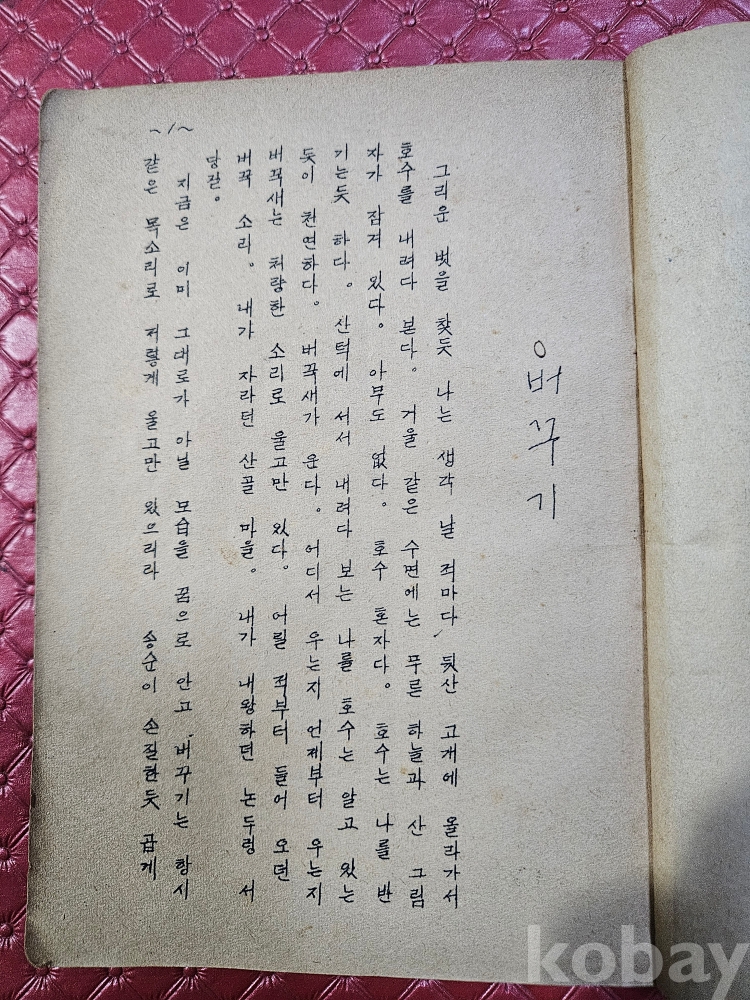 ○버꾸기
그리운 벗을 찾듯 나는 생각 날 적마다 뒷산 고개에 올라가서
호수를 내려다 본다. 거울 같은 수면에는 푸른 하늘과 산 그림
자가 잠겨 있다. 아무도 없다. 호수 혼자다. 호수는 나를 반
기는듯 하다. 산턱에 서서 내려다 보는 나를 호수는 알고 있는
듯이 천연하다. 버꾹새가 운다. 어디서 우는지 언제부터 우는지
버꾹새는 처량한 소리로 울고만 있다. 어릴 적부터 들어 오던
버꾹 소리. 내가 자라던 산골 마을. 내가 내왕하던 논두렁 서
당길.
지금은 이미 그대로가 아닐 모습을 꿈으로 안고 버꾸기는 항시
같은 목소리로 저렇게 울고만 있으리라 송순이 손질한듯 곱게
~1~
kobay